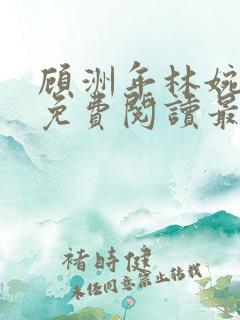 顾洲年林婉
免費閱讀最
褚時健
未经同意禁止转载